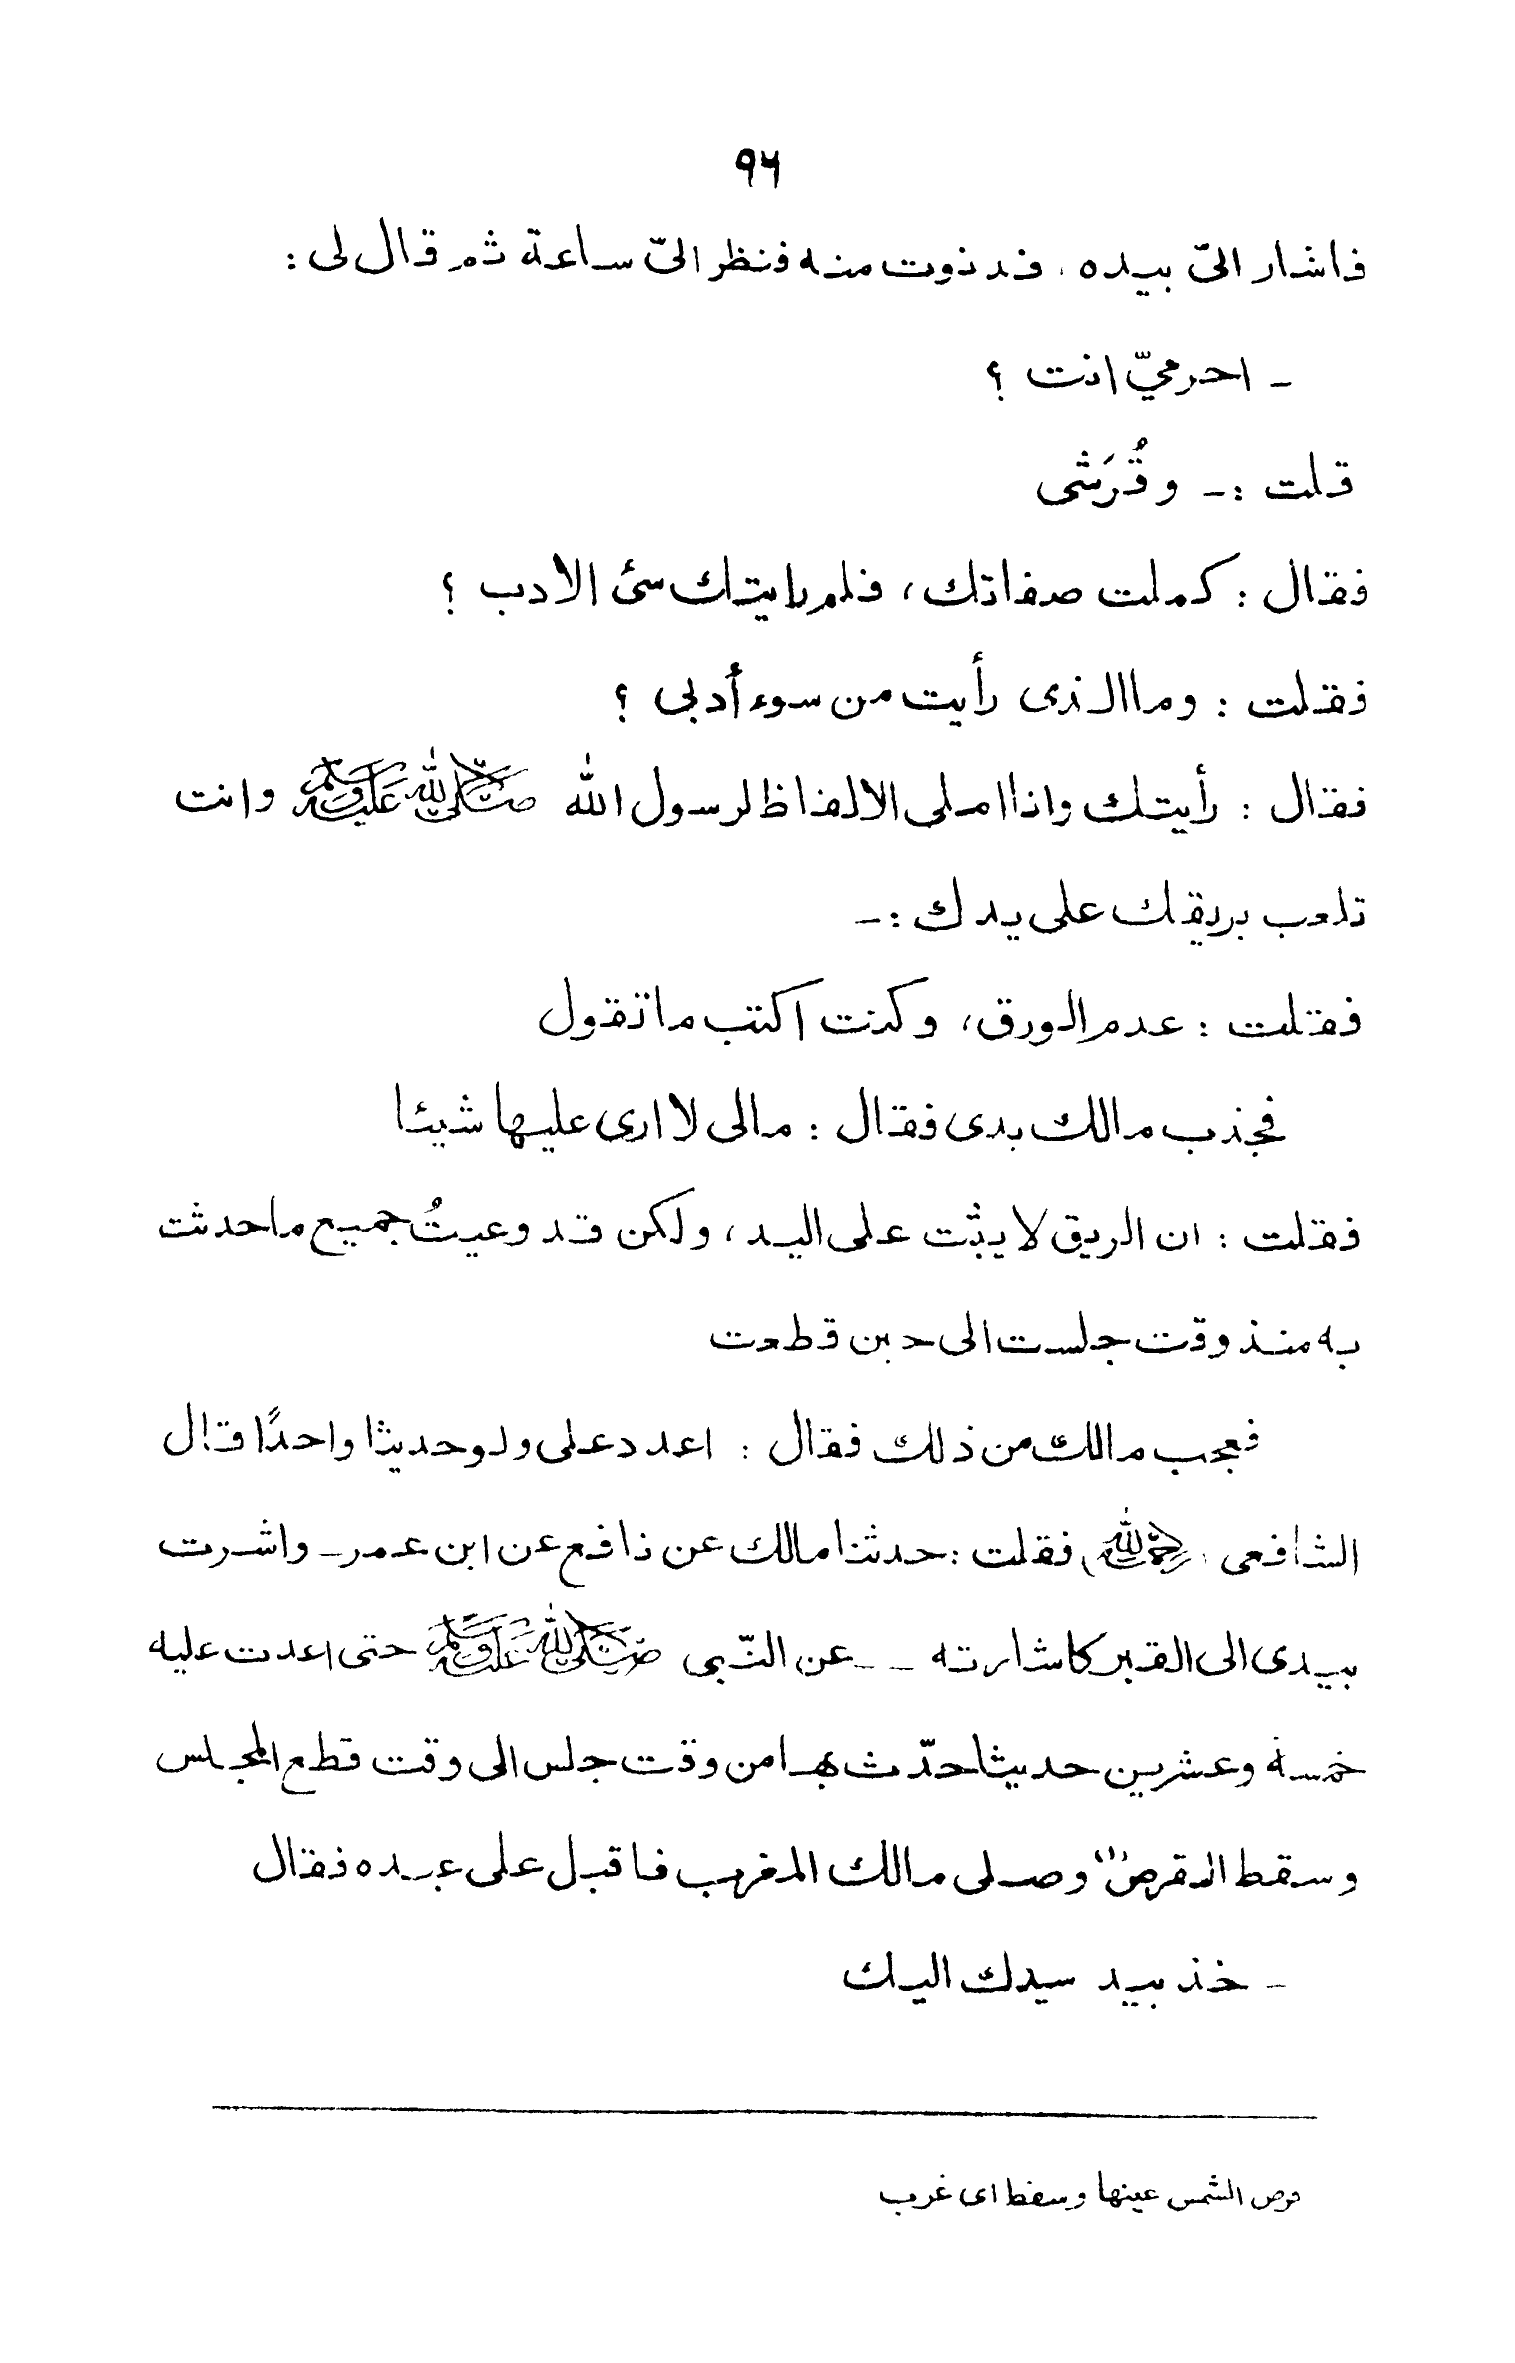 ٩٦
فاشار الىّ بيده، فدنوت منه فنظر الىّ ساعة ثم قال لى :
ـ احرميّ انت ؟
قلت :ـ وقُرَشى
فقال : كملت صفاتك، فلم رايتك سئ الادب ؟
فقلت : وماالذى رأيت من سوء أدبى ؟
فقال : رأيتك واذا املى الالفاظ لرسول الله ﷺ وانت
تلعب بريقك على يدك :ـ
فقلت : عدم الورق، وكنت اكتب ما تقول
فجذب مالك بدى فقال : مالى لا ارى عليها شيئا
فقلت : ان الريق لا يثبت على اليد، ولكن قد وعيتُ جميع ما حدثت
به منذ وقت جلست الى حين قطعت
فعجب مالك من ذلك فقال : اعدد على ولو حديثا واحدًا قال
الشافعى، رحمه الله، فقلت : حدثنا مالك عن نافع عن ابن عمر ـ واشرت
بيدى الى القبر كاشارته ــ عن النّبى ﷺ حتى اعدت عليه
خمسة وعشرين حديثا حدّث بها من وقت جلس الى وقت قطع المجلس
وسقط القرص (١) وصلى مالك المغرب فاقبل على عبده فقال
ـ خذ بيد سيدك اليك
قرص الشمس عينها وسقط اى غرب